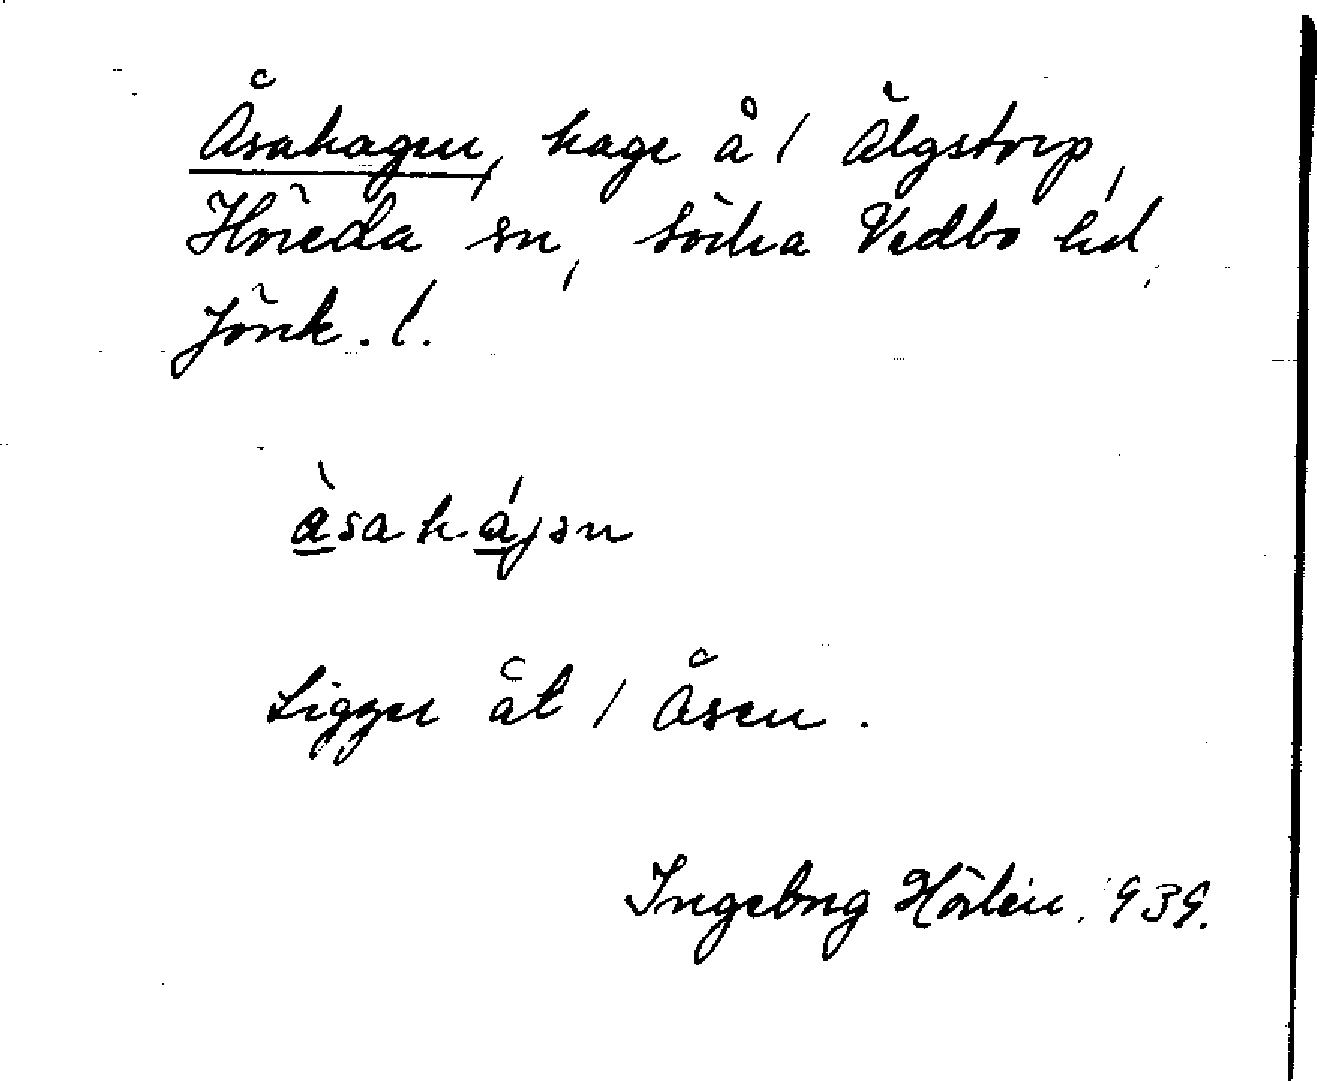 Åsahagen, hage å / Älgstorp,
Höreda sn, Södra Vedbo hd,
Jönk. l.
àsahájən
Ligger åt / Åsen.
Ingeborg Hörlin. 1939.